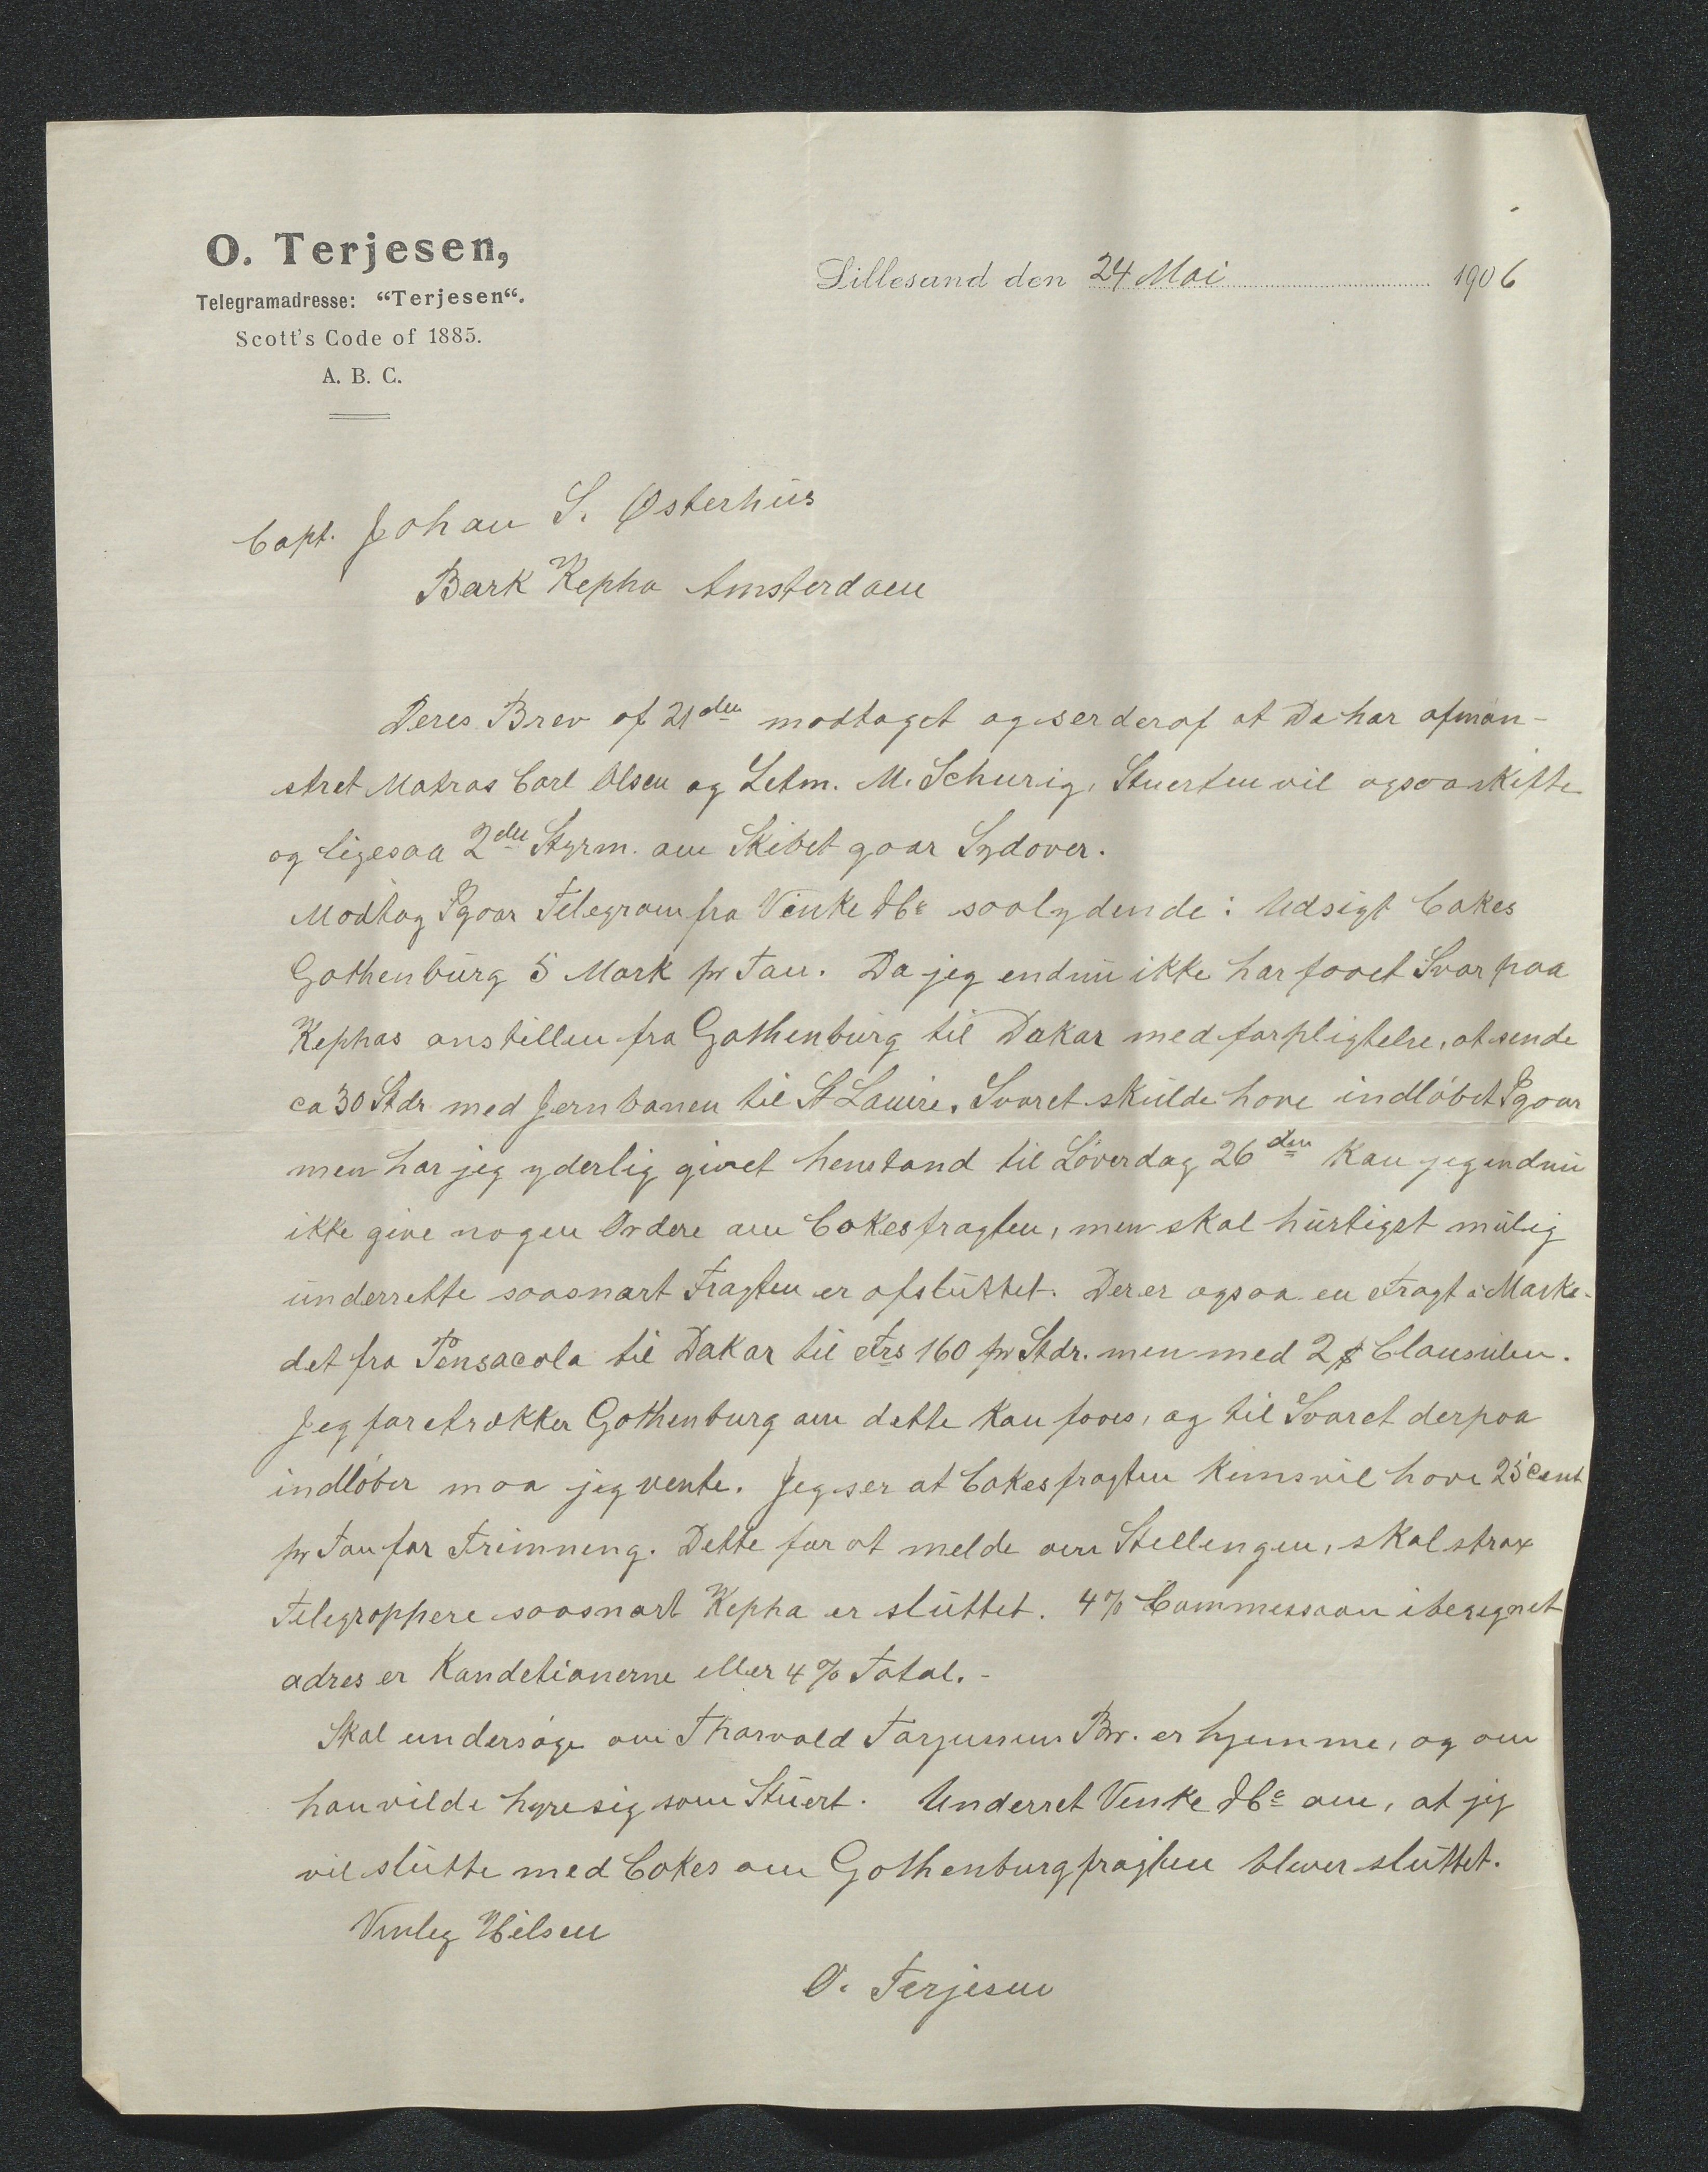 O. Terjesen,
Telegramadresse: “Terjesen“.
Scott's Code of 1885.
A. B. C.
Lillesand den 24 Mai 1906
Capt. Johan S. Østerhus
Bark Kepha Amsterdam
Deres Brev af 21den modtaget og ser deraf at De har afmøn-
stret Matros Carl Olsen og Letm. M. Schurig, Stuerten vil ogsaa skifte
og ligesaa 2den Styrm. om Skibet gaar Sydover.
Modtog Igaar Telegram fra Vinke &Co saalydende: Udsigt Cokes
Gothenburg 5 Mark pr Ton. Da jeg endnu ikke har faaet Svar paa
Kephas anstillen fra Gothenburg til Dakar med forpligtelse, at sende
ca 30 Stdr med Jernbanen til St Louire. Svaret skulde have indløbet Igaar
men har jeg yderlig givet henstand til Løverdag 26den kan jeg endnu
ikke give nogen Ordere om Cokesfragten, men skal hurtigst mulig
underrette saasnart Fragten er afsluttet. Der er ogsaa en Fragt i Marke-
det fra Pensacola til Dakar til Frs 160 pr Stdr. men med 2 $ Clausulen.
Jeg foretrækker Gothenburg om dette kan faaes, og til Svaret derpaa
indløber maa jeg vente. Jeg ser at Cokesfragten kuns vil have 25 cent
pr Ton for Trimning. Dette for at melde om Stellingen, skal strax
Telegraphere saasnart Kepha er sluttet. 4% Commession iberegnet
adres er Kondetionerne eller 4% Total.-
Skal undersøge om Thorvald Torjussen Br. er hjemme, og om
han vilde hyre sig som Stuert. Underret Vinke &Co om, at jeg
vil slutte med Cokes om Gothenburgfragten bliver sluttet.
Venlig Hilsen
O. Terjesen